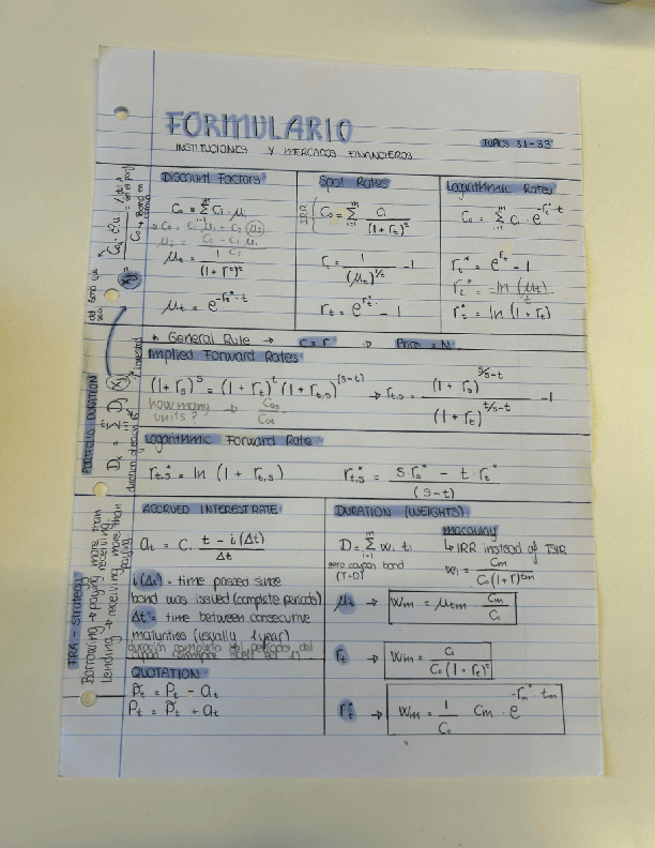 FORMULARIO
INSTITUCIONES Y MERCADOS FINANCIEROS
TOPICS 31-33
Discount Factors
C₀ = Σ Cᵢ · μᵢ
→ C₀ = C₁ μ₁ + C₂ μ₂
μ₂ = (C₀ - C₁ μ₁) / C₂
μₜ = 1 / (1 + rₜ)ᵗ
μₜ = e^(-rₜ* · t)
Spot Rates
IRR { C₀ = Σ Cᵢ / (1 + rₜ)ᵗ
rₜ = 1 / (μₜ)^(1/t) - 1
rₜ = e^(rₜ*) - 1
Logarithmic Rates
C₀ = Σ Cᵢ · e^(-rₜ* · t)
rₜ* = e^(rₜ) - 1
rₜ* = -ln (μₜ) / t
rₜ* = ln (1 + rₜ)
* General Rule → c = r → Price = N
Implied Forward Rates
(1 + rₛ)ˢ = (1 + rₜ)ᵗ (1 + rₜ,ₛ)^(s-t) → rₜ,ₛ = (1 + rₛ)^(s/s-t) / (1 + rₜ)^(t/s-t) - 1
how many → C₀ₛ / C₀ₜ
units?
Logarithmic Forward Rate
rₜ,ₛ* = ln (1 + rₜ,ₛ)
rₜ,ₛ* = (s · rₛ* - t · rₜ*) / (s-t)
ACCRUED INTEREST RATE
aₜ = C · (t - i(Δt)) / Δt
i(Δt) = time passed since
bond was issued (complete periods)
Δt = time between consecutive
maturities (usually 1 year)
QUOTATION
P̃ₜ = Pₜ - aₜ
Pₜ = P̃ₜ + aₜ
DURATION (WEIGHTS)
D = Σ wᵢ tᵢ
zero coupon bond
(T=D)
macaulay
↳ IRR instead of TSIR
wᵢ = Cm / C₀(1+r)^tm
μₜ → Wm = μtm · Cm / C₀
rₜ → Wm = Cᵢ / C₀ (1 + rₜ)ᵗ
rₜ* → Wm = 1 / C₀ · Cm · e^(-rm* · tm)
PORTFOLIO DURATION
Dₓ = Σ Dj Xj
% invested
FRA - strategy
Borrowing → paying more than receiving
Lending → receiving more than paying